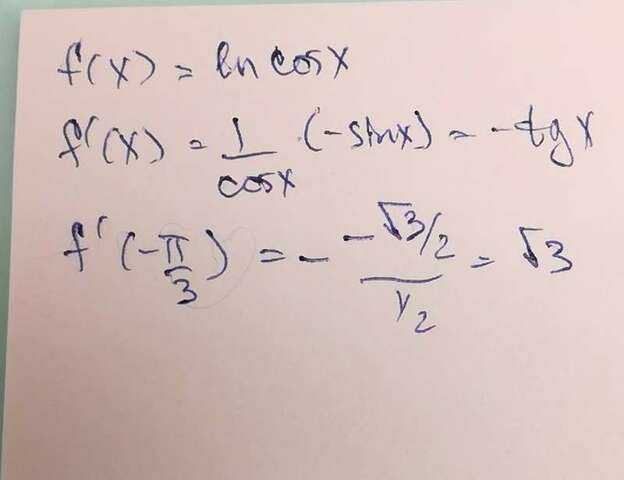 f(x) = ln cosx
f'(x) = 1/cosx · (-sinx) = -tg x
f'(-π/3) = - (-√3/2)/(1/2) = √3